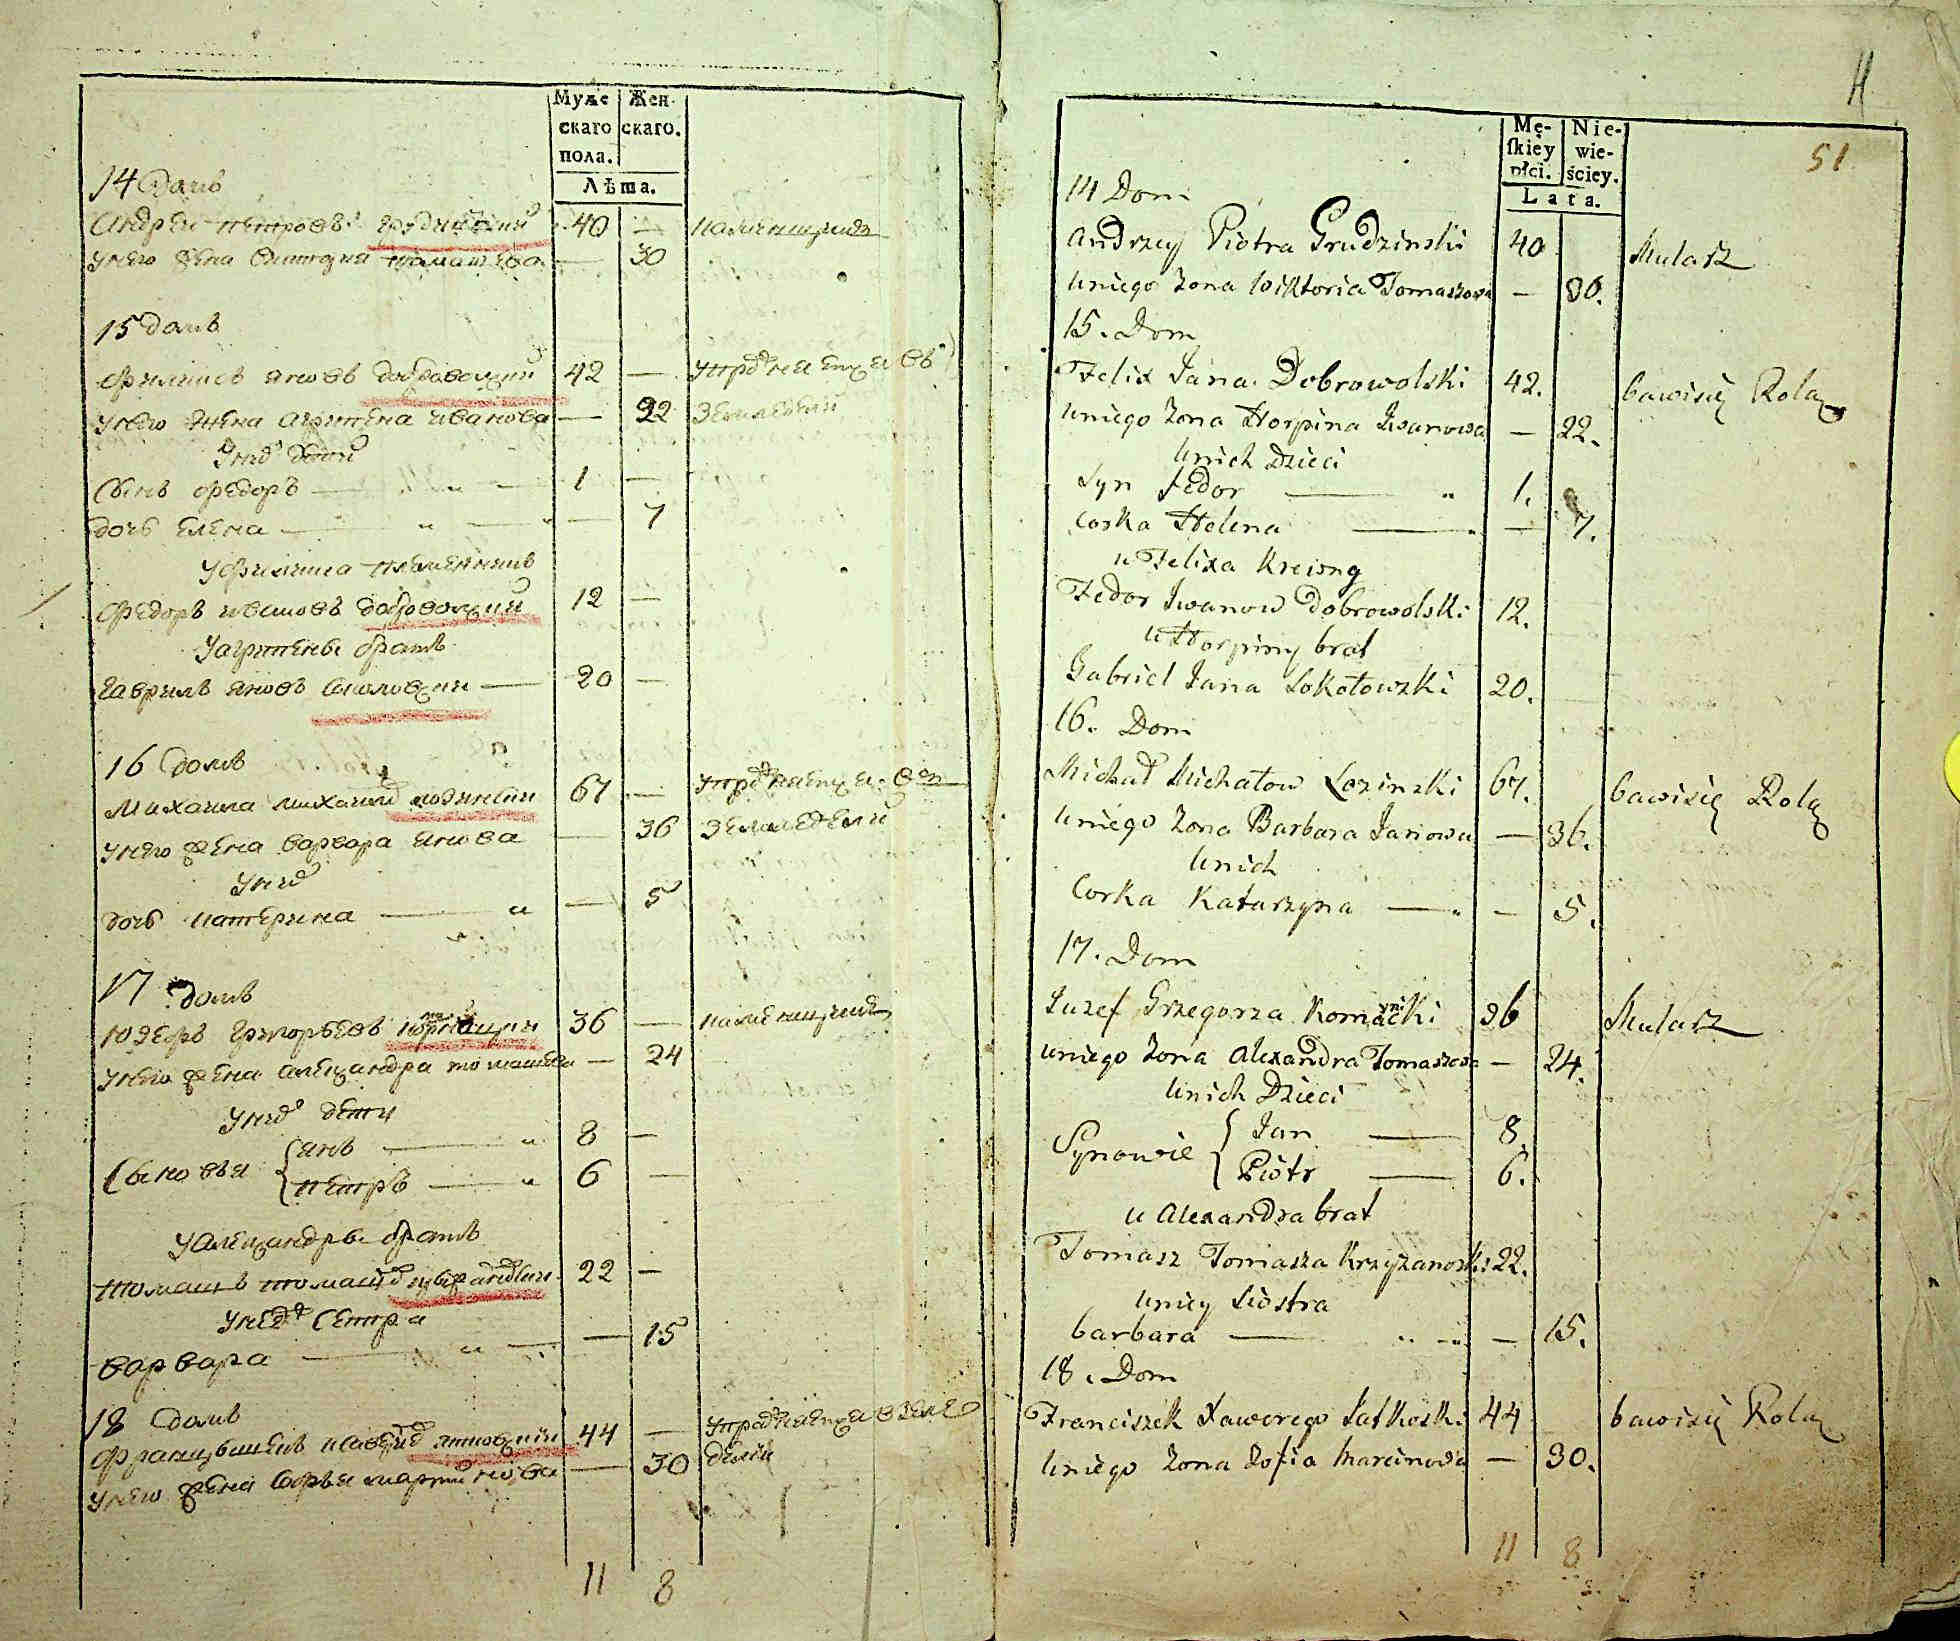 Муже
скаго
пола.
Жен-
скаго.
Лѣта.
14 Домъ
Андрей Петровъ Грудзинский 40 — каменщикъ
у него жена Виктория Томашева — 30
15 Домъ
Филиксъ Яновъ Добровольский 42 — упражняется въ
у него жена Агрипена Иванова — 22 земледелии
у них дети
Сынъ Федоръ — „ — 1 —
дочь Елена — „ — — 7
у Филикса племянникъ
Федоръ Ивановъ Добровольский 12 —
у Агрипены братъ
Гаврилъ Яновъ Соколовский — 20 —
16 Домъ
Михаила Михайлов Лозинский 67 — упражняется в
у него жена Варвара Янова — 36 земледелии
у них
дочь Катерина — „ — 5
17 домъ
Юзефъ Григорьевъ 36 — каменщикъ
у него жена Александра Томашева — 24
у них дети
Сыновья { Янъ — „ 8 —
Петръ — „ 6 —
у Александры братъ
Томашъ Томашев 22 —
у нее сестра
Варвара — „ — — 15
18 домъ
44 — упражняется в земле
у него жена Софья Мартинова — 30 делии
11 8
11
51
Mę-
ſkiey
płci.
Nie-
wie-
ściey.
Lata.
14 Dom
Andrzey Piotra Grudzinski 40 Mularz
Uniego Zona Wiktoria Tomaszowa — 30.
15. Dom
Felix Jana Dobrowolski 42. bawisię Rolą
Uniego Zona Horpina Iwanowa — 22.
Unich Dzieci
Syn Fedor — „ 1.
Corka Helena — — 7.
u Felixa Krewny
Fedor Iwanow Dobrowolski 12.
u Horpiny brat
Gabriel Jana Sokołowski 20.
16. Dom
Michał Michałow Lozinski 67. bawisię Rolą
Uniego Zona Barbara Janowa — 36.
Unich
Corka Katarzyna — „ — 5.
17. Dom
Juzef Grzegorza 36 Mularz
Uniego Zona Alexandra Tomaszowa — 24.
Unich Dzieci
Synowie { Jan — 8.
Piotr — 6.
u Alexandra brat
Tomasz Tomasza Krzyżanoski 22.
Uniey Siostra
barbara — „ „ — 15.
18. Dom
Franciszek Xawerego 44 bawisię Rolą
Uniego Zona Zofia Marcinowa — 30.
11 8